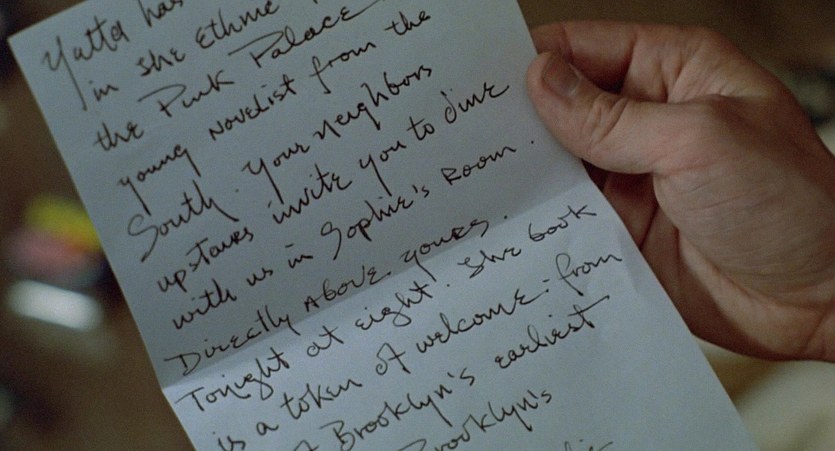 Yatta has
in she Ethnic
the Pink Palace
young Novelist from the
South. Your neighbors
upstairs invite you to dine
with us in Sophie's Room.
Directly Above yours.
Tonight at eight. The book
is a token of welcome: from
of Brooklyn's earliest
Brooklyn's